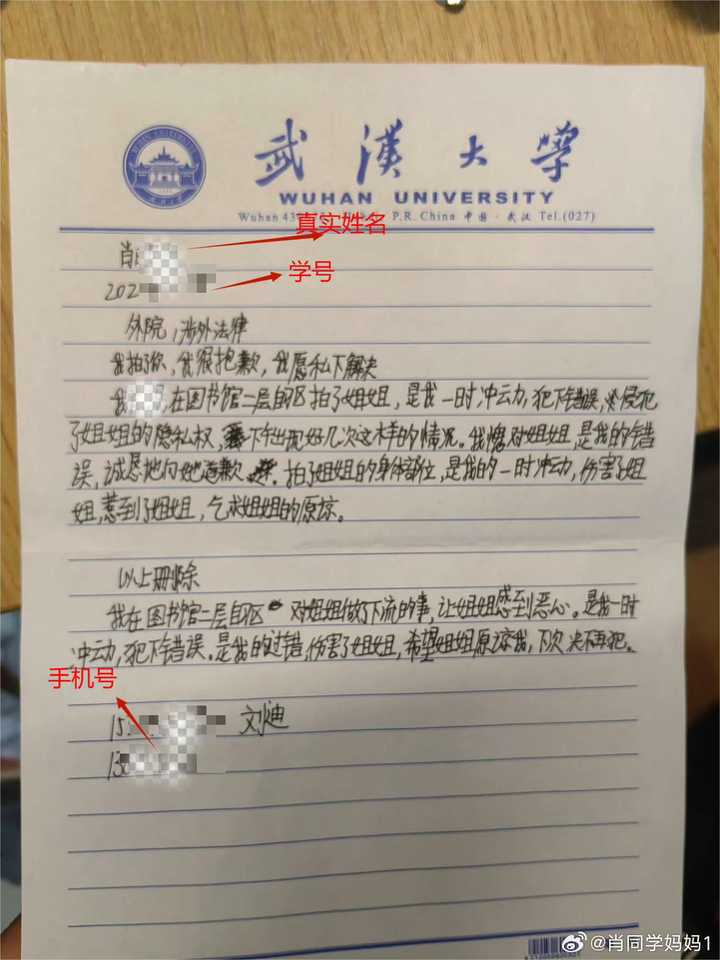 武漢大學
WUHAN UNIVERSITY
Wuhan 43 P.R. China 中国·武汉 Tel.(027)
真实姓名
肖
学号
202
外院,涉外法律
我拍了你,我很抱歉,我愿私下解决
我 ,在图书馆二层自习区拍了姐姐,是我一时冲动,犯下错误,侵犯
了姐姐的隐私权, 下午出现好几次这样的情况。我愧对姐姐,是我的错
误,诚恳地向她道歉 。拍了姐姐的身体部位,是我的一时冲动,伤害了姐
姐,惹到了姐姐,乞求姐姐的原谅。
以上删除
我在图书馆二层自习区 对姐姐做了下流的事,让姐姐感到恶心。是我一时
冲动,犯下错误。是我的过错,伤害了姐姐,希望姐姐原谅我,下次决不再犯。
手机号
15
13
@肖同学妈妈1